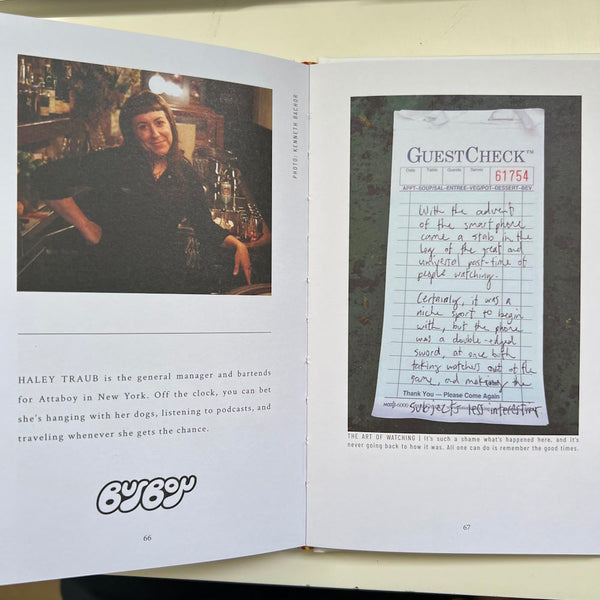 PHOTO: KENNETH BACHOR
HALEY TRAUB is the general manager and bartends
for Attaboy in New York. Off the clock, you can bet
she's hanging with her dogs, listening to podcasts, and
traveling whenever she gets the chance.
BUSBOY
66
GUESTCHECK™
Date Table Guests Server
61754
APPT-SOUP/SAL-ENTREE-VEG/POT-DESSERT-BEV
With the advent
of the smartphone
came a stab in the
leg of the great and
universal past-time of
people watching.
Certainly, it was a
niche sport to begin
with, but the phone
was a double-edged
sword, at once both
taking watchers out of the
game, and making the
Thank You — Please Come Again
subjects less interesting
THE ART OF WATCHING | It's such a shame what's happened here, and it's
never going back to how it was. All one can do is remember the good times.
67